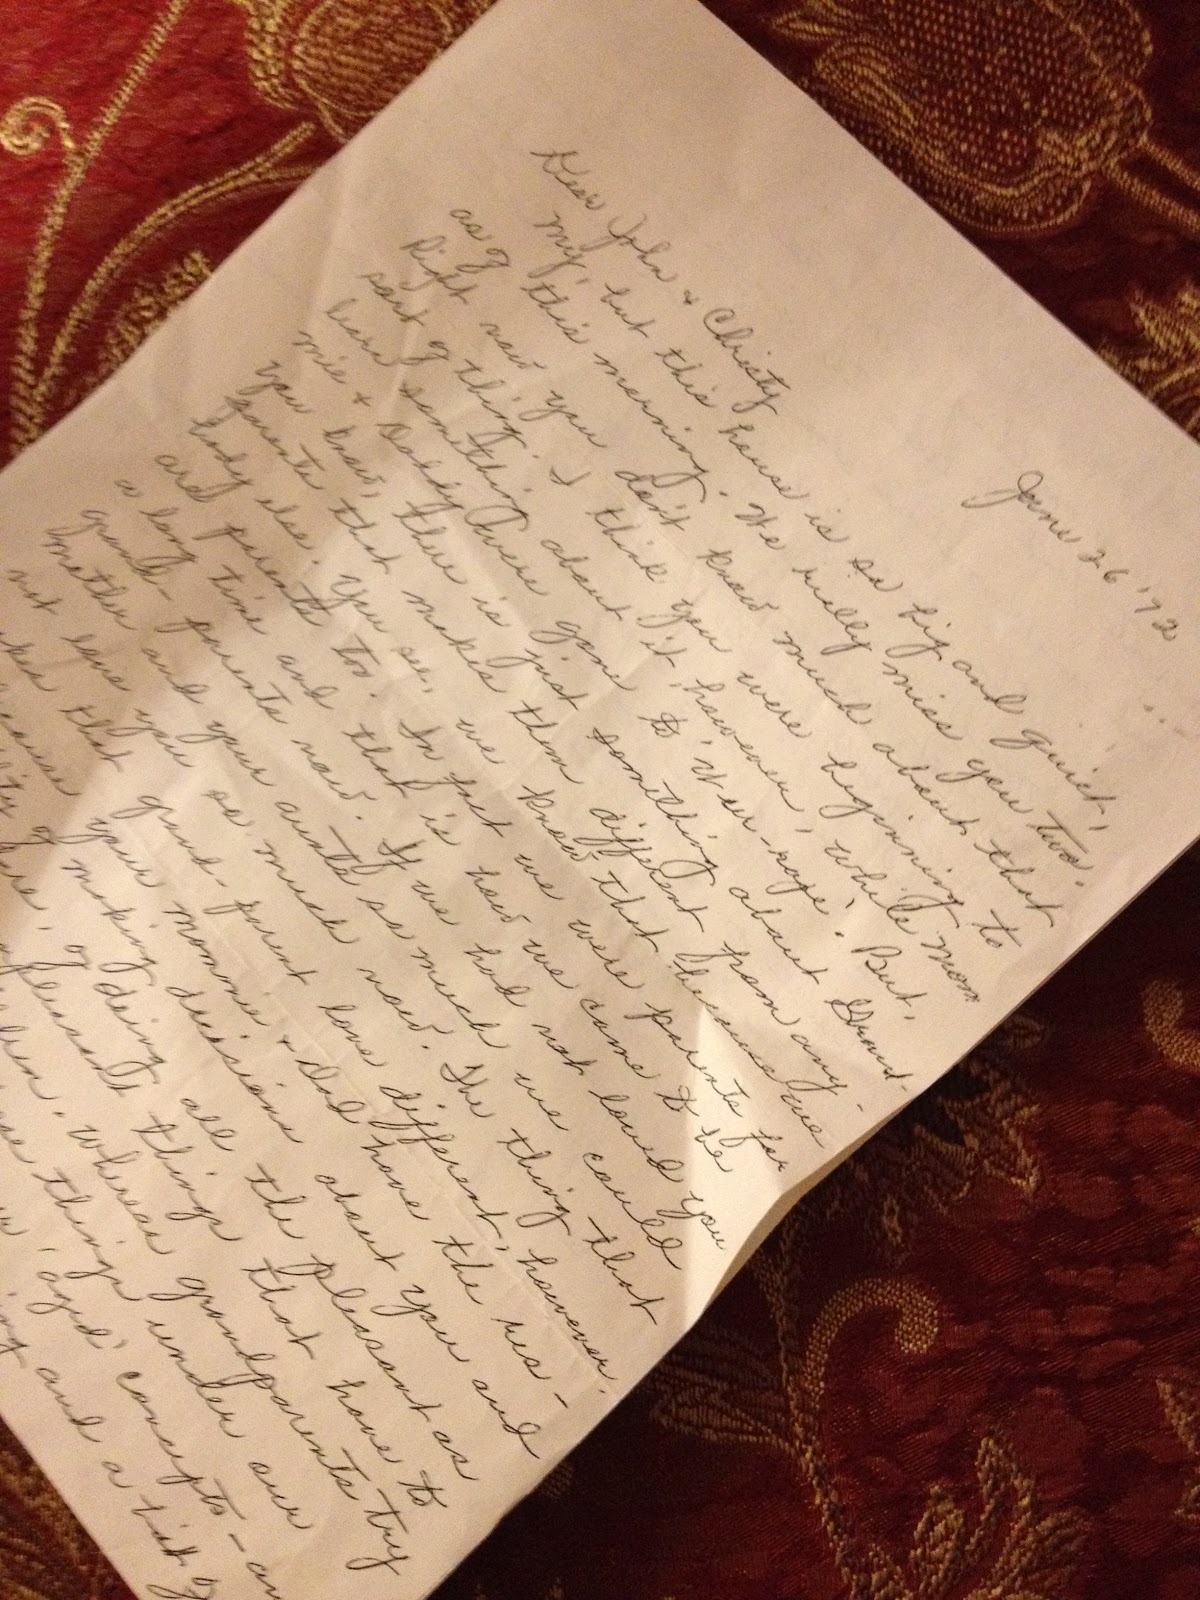 June 26 '72
Dear John & Christy
My, but this house is so big and quiet,
as of this morning. We really miss you two.
Right now you don't know much about that
sort of thing. I think you were beginning to
learn something about it, however, while mom
mie & Daddy were gone to 'Nor-way'. But,
you know, there is just something about Grand-
parents that makes them different from any-
body else. You see, we know that because we
are parents too. In fact we were parents for
a long time and that is how we came to be
grand-parents now. If we had not loved you
mother and your aunts so much we could
not love you so much now. The thing that
makes that grand-parent love different, however,
because your mommie & Dad have the res-
ity of making decisions about you and
here, of doing all the pleasant as
unpleasant things that have to
when. Whereas grandparents try
these things under our
'aged' concepts - an
ing and a bit of